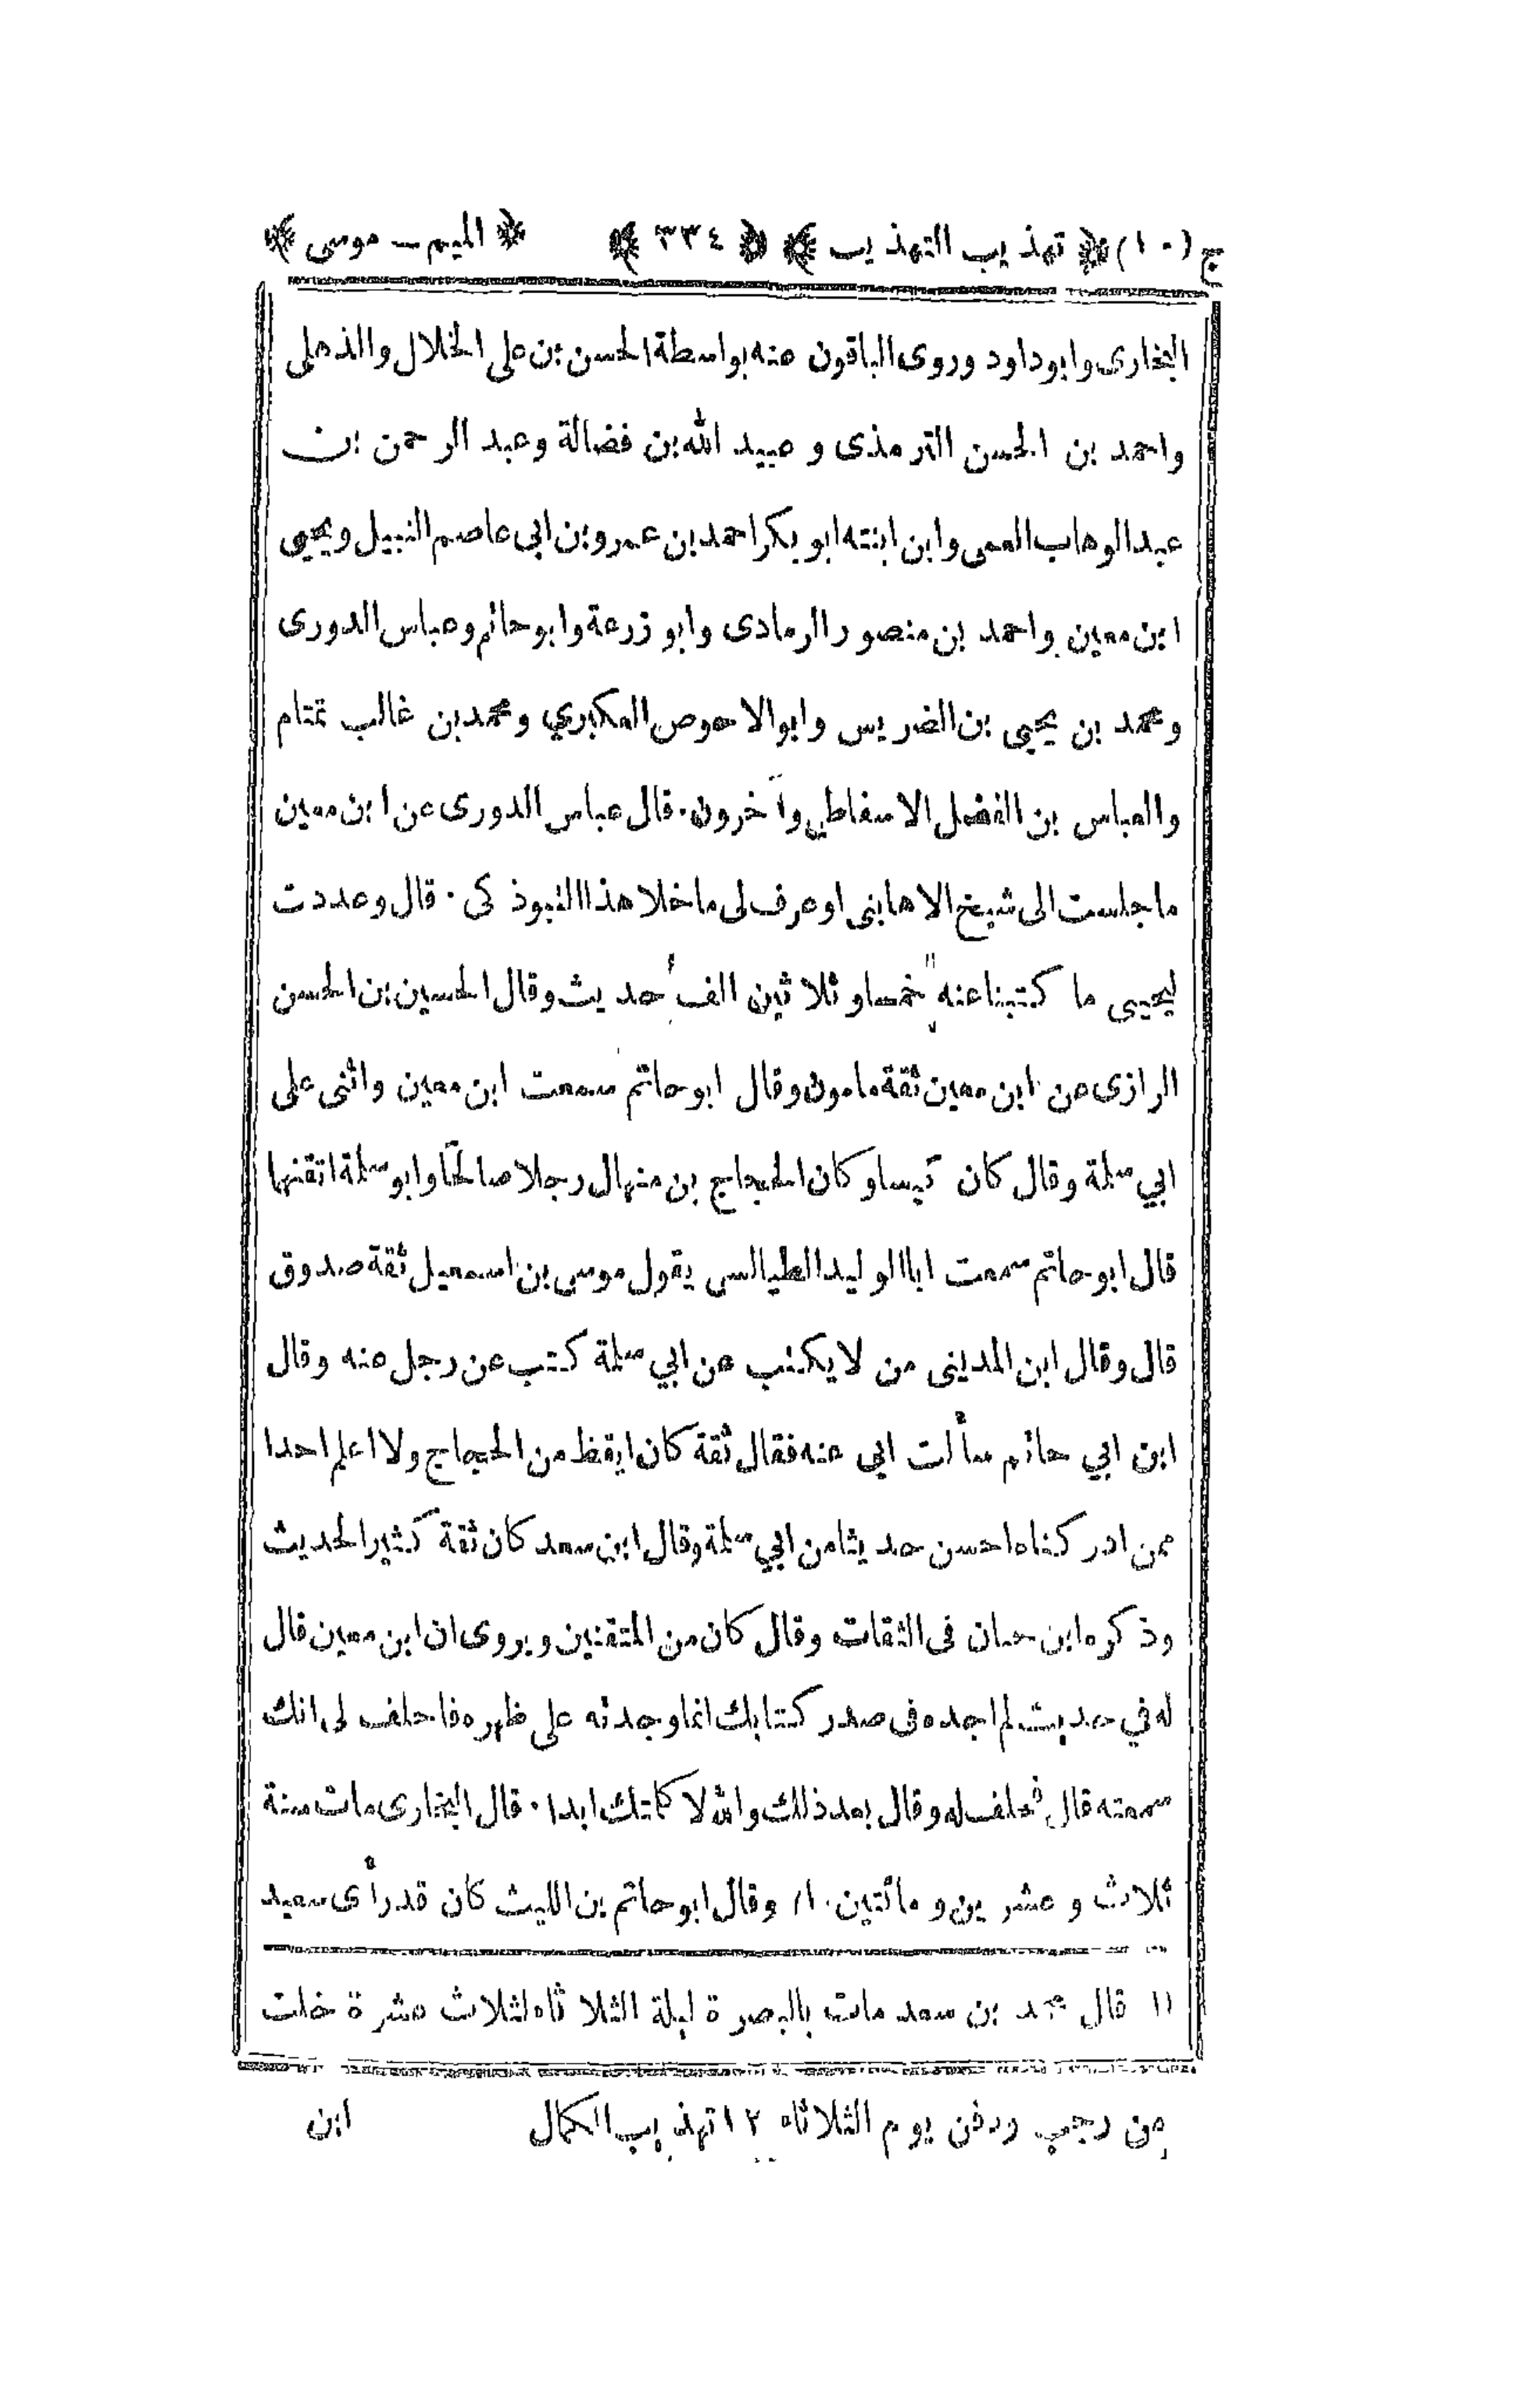 ج (١٠) تهذيب التهذيب ٣٣٤ الميم – موسى
البخارى وابوداود وروى الباقون عنه بواسطة الحسن بن على الخلال والذهلى
واحمد بن الحسن الترمذى و عبيد الله بن فضالة وعبد الرحمن بن
عبد الوهاب العمى وابن ابنته ابو بكر احمد بن عمرو بن ابى عاصم النبيل ويحيى
ابن معين واحمد بن منصور الرمادى وابو زرعة وابو حاتم وعباس الدورى
ومحمد بن يحيى بن الضريس وابو الاحوص العكبري ومحمد بن غالب تمتام
والعباس بن الفضل الاسفاطي وآخرون. قال عباس الدورى عن ابن معين
ما جلست الى شيخ الا هابنى او عرف لى ما خلا هذا التبوذكى. قال وعددت
ليحيى ما كتبنا عنه خمسا وثلاثين الف حديث وقال الحسين بن الحسن
الرازى عن ابن معين ثقة مامون وقال ابو حاتم سمعت ابن معين واثنى على
ابي سلمة وقال كان كيسا وكان الحجاج بن منهال رجلا صالحا وابو سلمة اتقنهما
قال ابو حاتم سمعت ابا الوليد الطيالسى يقول موسى بن اسمعيل ثقة صدوق
قال وقال ابن المدينى من لا يكتب عن ابي سلمة كتب عن رجل عنه وقال
ابن ابي حاتم سألت ابى عنه فقال ثقة كان ايقظ من الحجاج ولا اعلم احدا
ممن ادركناه احسن حديثا من ابي سلمة وقال ابن سعد كان ثقة كثير الحديث
وذكره ابن حبان فى الثقات وقال كان من المتقنين ويروى ان ابن معين قال
له في حديث لم اجده فى صدر كتابك انما وجدته على ظهره فاحلف لى انك
سمعته قال فحلف له وقال بعد ذلك والله لا كلمتك ابدا. قال البخارى مات سنة
ثلاث و عشرين و مائتين. ١١ وقال ابو حاتم بن الليث كان قد رأى سعيد
١١ قال محمد بن سعد مات بالبصرة ليلة الثلاثاء لثلاث عشرة خلت
من رجب ودفن يوم الثلاثاء ١٢ تهذيب الكمال
ابن